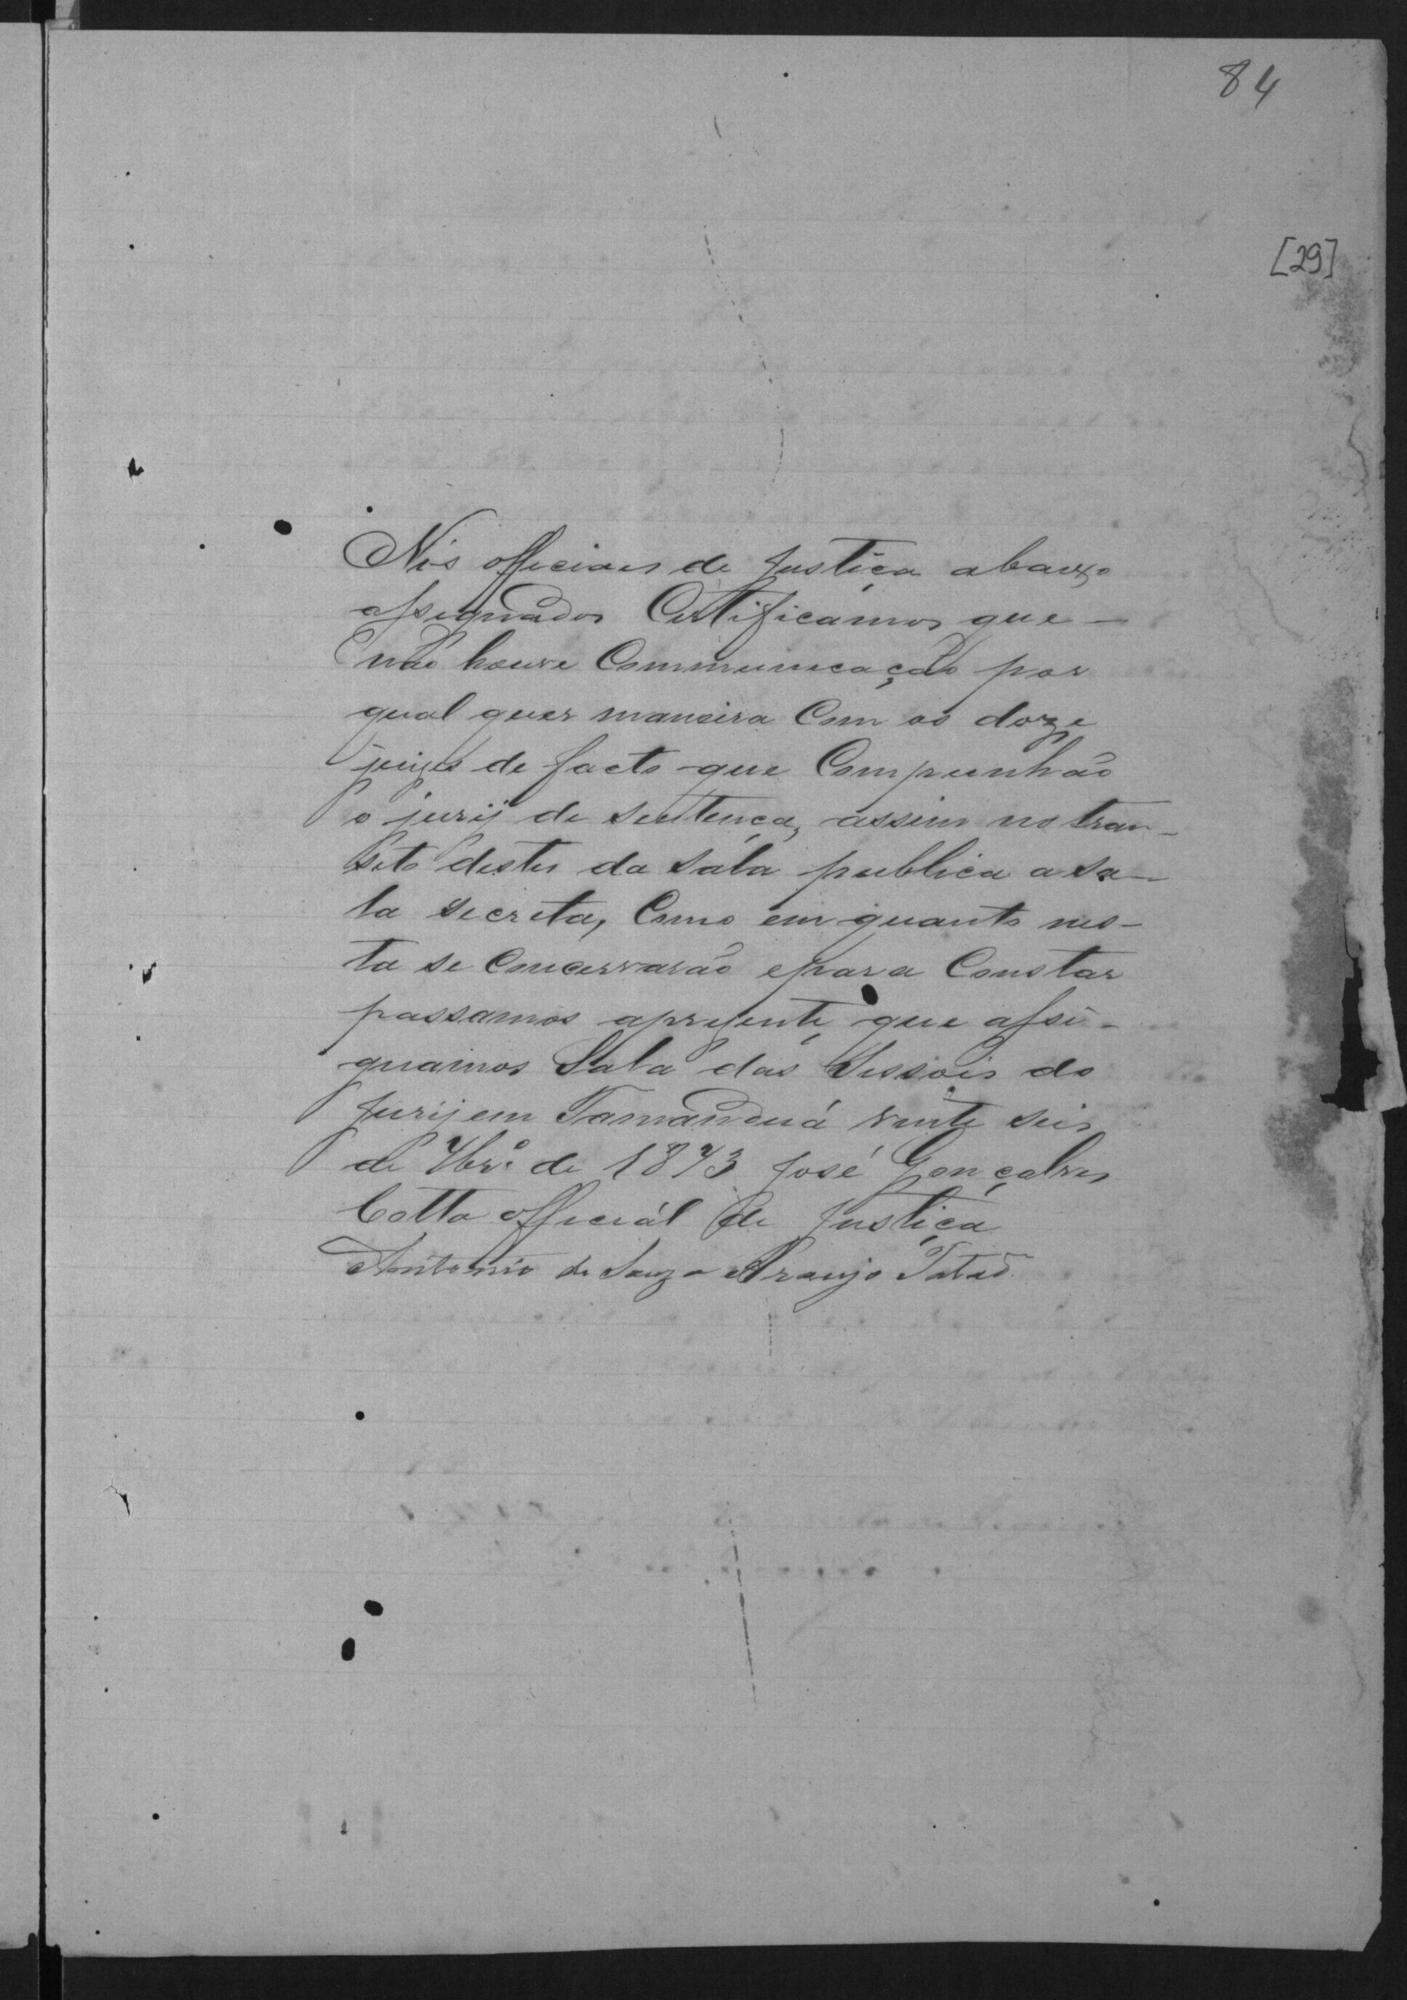 84
[29]
Nós officiaes de Justiça abaixo
assignados Certificamos que –
não houve Communicação por
qual quer maneira Com os doze
juizes de facto que Compunhão
o jurij de sentença, assim no tran-
sito destes da sala publica a sa-
la secreta, Como em quanto nes-
ta se Concervarão e para Constar
passamos aprezente, que assi-
gnamos Sala das Sessois do
Jurij em Tamanduá vinte seis
de 7br.º de 1873 José Gonçalves
Cotta official de Justiça
Antonio de Souza Araujo